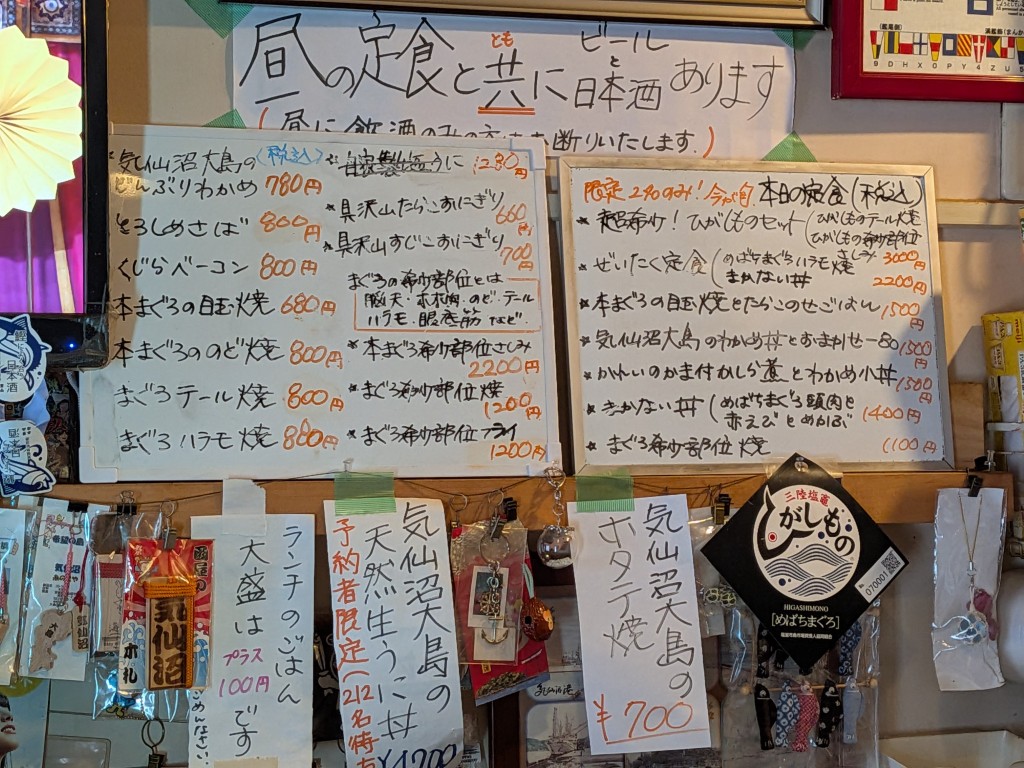 昼の定食と共にビールと日本酒あります
とも
(昼に飲酒のみの方はお断りいたします。)
気仙沼大島の(税込)
どんぶりわかめ 780円
とろしめさば 800円
くじらベーコン 800円
本まぐろの目玉焼 680円
本まぐろののど焼 800円
まぐろテール焼 800円
まぐろハラモ焼 800円
1280円
貝沢山たらこおにぎり
660円
貝沢山すじこおにぎり
700円
まぐろの希少部位とは
脳天・ホホ肉・のど・テール
ハラモ・眼底筋など
本まぐろ希少部位さしみ
2200円
まぐろ希少部位焼
1200円
まぐろ希少部位フライ
1200円
限定2名のみ!今が旬 本日の定食(税込)
超希少!ひがしものセット(ひがしものテール焼
ひがしもの希少部位
さしみ
3000円
ぜいたく定食(めばちまぐろハラモ焼
まかない丼
2200円
本まぐろの目玉焼とたらこのせごはん 1500円
気仙沼大島のわかめ丼とおまかせ一品 1500円
かれいのかま付かしら煮とわかめ小丼 1500円
まかない丼(めばちまぐろ頭肉と
赤えびとめかぶ 1400円
まぐろ希少部位焼 1100円
ランチのごはん
大盛は
プラス
100円
です
ごめんなさい
気仙沼大島の
天然生うに丼
予約者限定(212名待ち
¥4200
気仙沼大島の
ホタテ焼
¥700
三陸塩竈
ひがしもの
HIGASHIMONO
[めばちまぐろ]
070001
気仙沼
日本酒